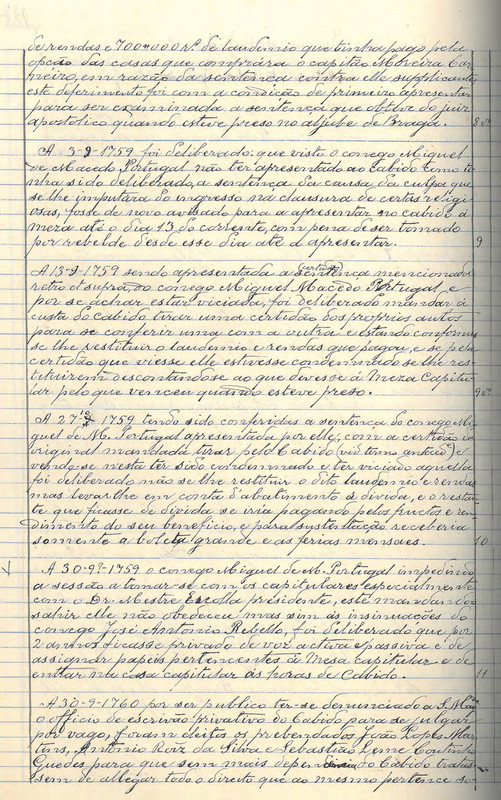 de rendas e 700"000 rs. de laudemio que tinha pago pela
opção das casas que comprára o capitão Moreira Car
neiro, em razão da sentença contra elle supplicante
este deferimento foi com a condição de primeiro apresentar
para ser examinada a sentença que obteve do juiz
apostolico quando esteve preso no aljube de Braga. 8vº
A 3-9-1759 foi deliberado: que visto o conego Miguel
de Macedo Portugal não ter apresentado ao Cabido como ti
nha sido deliberado, a sentença da causa da culpa que
se lhe imputára do ingresso na clausura de certas religi
osas, fosse de novo avisado para a apresentar no cabido á
meza até o dia 13 do corrente, com pena de ser tomado
por rebelde desde esse dia até a apresentar. 9
(certidão)
A 13-9-1759 sendo apresentada a sentença mencionada
retro et supra, ao conego Miguel Macedo Portugal, e
por se achar estar viciada, foi deliberado mandar á
custa do Cabido tirar uma certidão dos proprios autos
para se conferir uma com a outra e estando conforme
se lhe restituir o laudemio e rendas que pagou, e se pela
certidão que viesse elle estivesse condemnado se lhe res
tituirem descontando-se ao que devesse á Meza Capitu
lar pelo que venceu quando esteve preso. 9vº
A 27 1759 tendo sido conferidas a sentença do conego Mi
guel de M. Portugal apresentada por elle, com a certidão do
original mandada tirar pelo Cabido (vid termo anteced) e
vendo-se nesta ter sido condemnado e ter viciado aquella
foi deliberado não se lhe restituir o dito laudemio e rendas
mas levar lhe em conta d'abatimento á divida, e o restan
te que ficasse de divida se iria pagando pelos fructos e ren
dimento do seu beneficio, e para sustentação receberia
somente a boleta grande e as ferias mensaes. 10
A 30-9º-1759 o conego Miguel de M. Portugal impedindo
a sessão a tomar-se com os capitulares especialmente
com o Dr. Mestre Escolla presidente, este mandando o
sahir elle não obedeceu mas sim ás insinuações do
conego José António Rebello, foi deliberado que por
2 annos ficasse privado de voz activa e passiva e de
assignar papeis pertencentes á Mesa capitular e de
entrar na casa capitular ás horas de Cabido. 11
A 30-9-1760 por ser publico ter-se denunciado a S. Mag
o officio de escrivão privativo do Cabido para se julgar
por vago, foram eleitos os prebendados João Lopes Mar
tins, Antonio Roiz da Silva e Sebastião Leme Coutinho
Guedes para que sem mais dependencia do Cabido tratas
sem de allegar todo o direito que ao mesmo pertence so